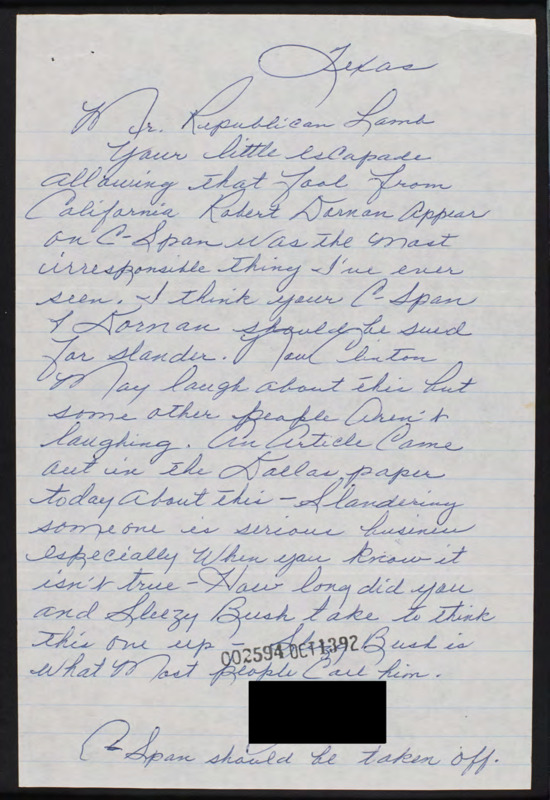 Texas
Mr. Republican Lamb
Your little escapade
allowing that fool from
California Robert Dornan Appear
on C-Span was the most
irresponsible thing I've ever
seen. I think your C-Span
& Dornan should be sued
for slander. Now Clinton
May laugh about this but
some other people Aren't
laughing. An Article Came
out in the Dallas paper
today About this - Slandering
someone is serious business
especially When you know it
isn't true - How long did you
and Sleezy Bush take to think
this one up - Bush is
002594 OCT1392
What Most people Call him.
C-Span should be taken off.